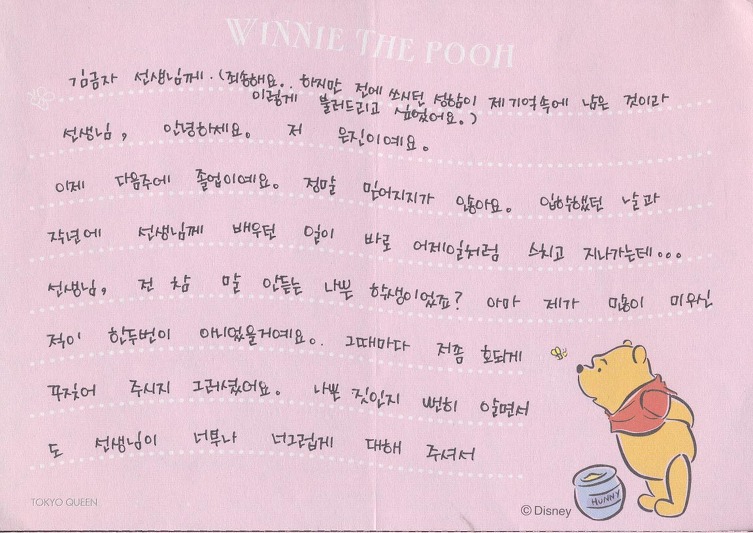 WINNIE THE POOH
김금자 선생님께. (죄송해요.. 하지만 전에 쓰시던 성함이 제 기억속에 남은 것이라
이렇게 불러드리고 싶었어요.)
선생님, 안녕하세요. 저 은진이예요.
이제 다음주에 졸업이예요. 정말 믿어지지가 않아요. 입학했던 날과
작년에 선생님께 배우던 일이 바로 어제일처럼 스치고 지나가는데...
선생님, 전 참 말 안듣는 나쁜 학생이었죠? 아마 제가 많이 미우신
적이 한두번이 아니었을거예요.. 그때마다 저좀 호되게
꾸짖어 주시지 그러셨어요. 나쁜 짓인지 뻔히 알면서
도 선생님이 너무나 너그럽게 대해 주셔서
HUNNY
TOKYO QUEEN
© Disney